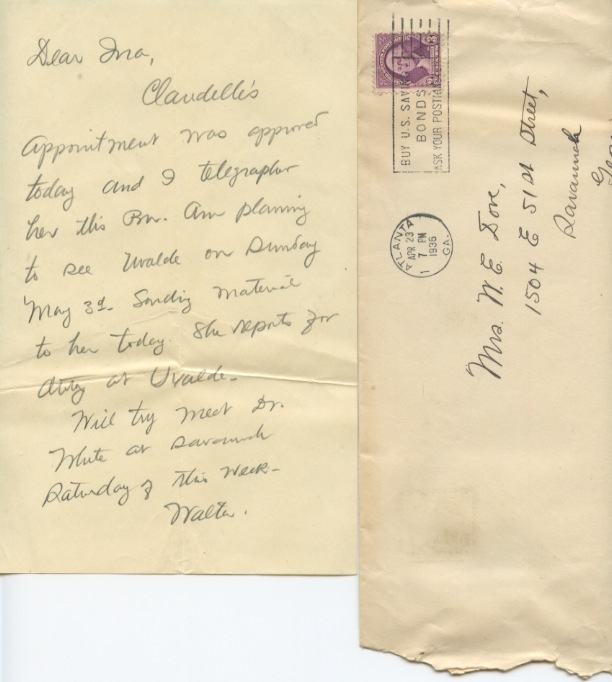 Dear Ina,
Claudelle's
Appointment was approved
today and I telegraphed
her this P.M. Am planning
to see Uvalde on Sunday
May 3d. Sending material
to her today. She reports for
duty at Uvalde.
Will try meet Dr.
White at Savannah
Saturday of this Week -
Walter.
BUY U.S. SAVINGS
BONDS
ASK YOUR POSTMASTER
ATLANTA
APR 23
7 PM
1936
GA.
1
Mrs. W. E. Dove,
1504 E 51st Street,
Savannah